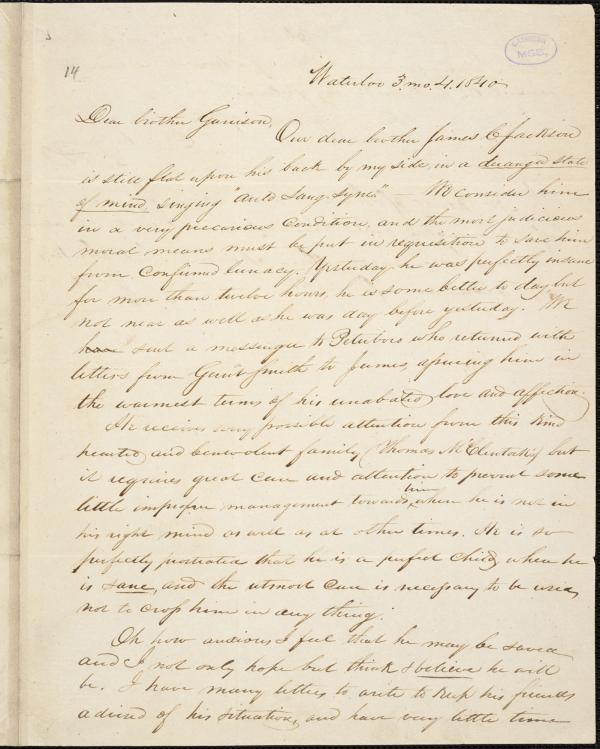 14
Waterloo 3. mo. 4. 1840
Dear brother Garrison,
Our dear brother James C Jackson
is still flat upon his back by my side, in a deranged state
of mind, singing "Auld Lang Syne." — We consider him
in a very precarious condition, and the most judicious
moral means must be put in requisition to save him
from confirmed lunacy. Yesterday he was perfectly insane
for more than twelve hours, he is some better to day but
not near as well as he was day before yesterday. We
have sent a messenger to Peterboro who returned with
letters from Gerrit Smith to James, assuring him in
the warmest terms of his unabated love and affection.
He receives every possible attention from this kind
hearted and benevolent family (Thomas McClintock's) but
it requires great care and attention to prevent some
little improper management towards him when he is not in
his right mind as well as at other times. He is so
perfectly prostrated that he is a perfect child, when he
is sane, and the utmost care is necessary to be used,
not to cross him in any thing.
Oh how anxious I feel that he may be saved
and I not only hope but think & believe he will
be. I have many letters to write to keep his friends
advised of his situation, and have very little time